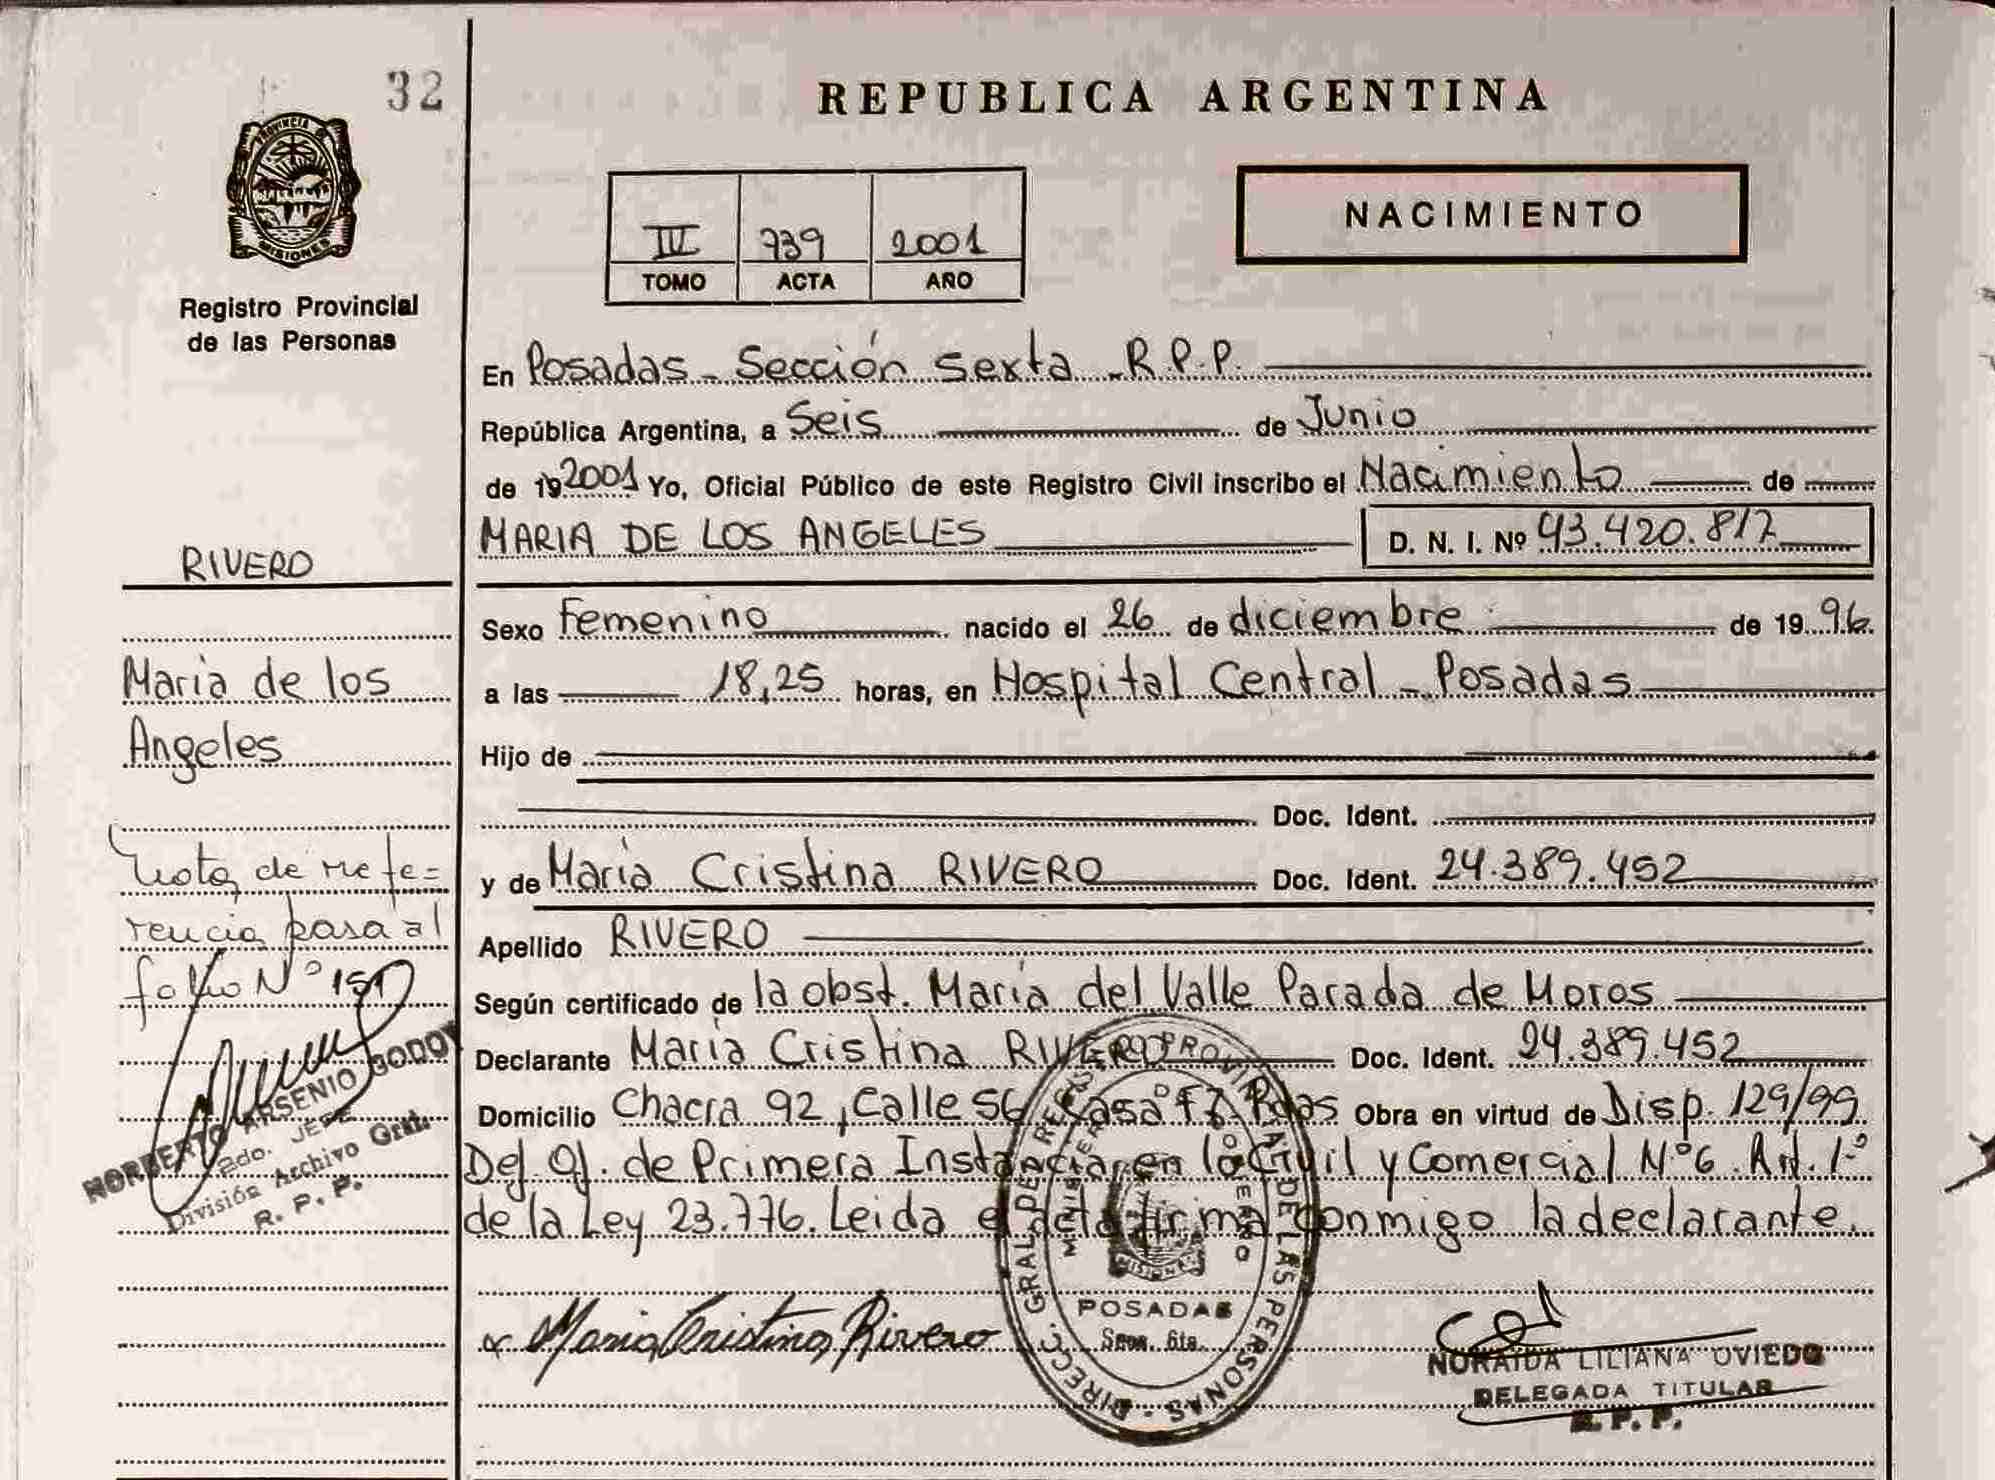 32
PROVINCIA
MISIONES
Registro Provincial
de las Personas
RIVERO
Maria de los
Angeles
Nota de refe=
rencia pasa al
folio Nº 151
NORBERTO ARSENIO GODOY
2do. JEFE
División Archivo Gral.
R. P. P.
REPUBLICA ARGENTINA
III 739 2001
TOMO ACTA AÑO
NACIMIENTO
En Posadas - Sección Sexta - R.P.P.
República Argentina, a Seis de Junio
de 19 2001 Yo, Oficial Público de este Registro Civil inscribo el Nacimiento de
MARIA DE LOS ANGELES D. N. I. Nº 43.420.817
Sexo Femenino nacido el 26 de diciembre de 19 96.
a las 18,25 horas, en Hospital Central - Posadas
Hijo de
Doc. Ident.
y de María Cristina RIVERO Doc. Ident. 24.389.452
Apellido RIVERO
Según certificado de la obst. María del Valle Parada de Moros
Declarante María Cristina RIVERO Doc. Ident. 24.389.452
Domicilio Chacra 92, Calle 56 Casa Pdas Obra en virtud de Disp. 129/99
Def. Of. de Primera Instancia en lo Civil y Comercial Nº 6. Art. 1º
de la Ley 23.776. Leida el acta firma conmigo la declarante.
DIRECC. GRAL. DE REGISTRO PROVINCIAL DE LAS PERSONAS
MINISTERIO DE GOBIERNO
MISIONES
POSADAS
Secc. 6ta.
x Maria Cristina Rivero
NORAIDA LILIANA OVIEDO
DELEGADA TITULAR
R. P. P.